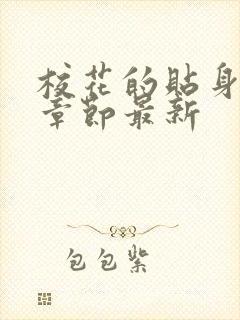 校花的貼身
章節最新
包包紫